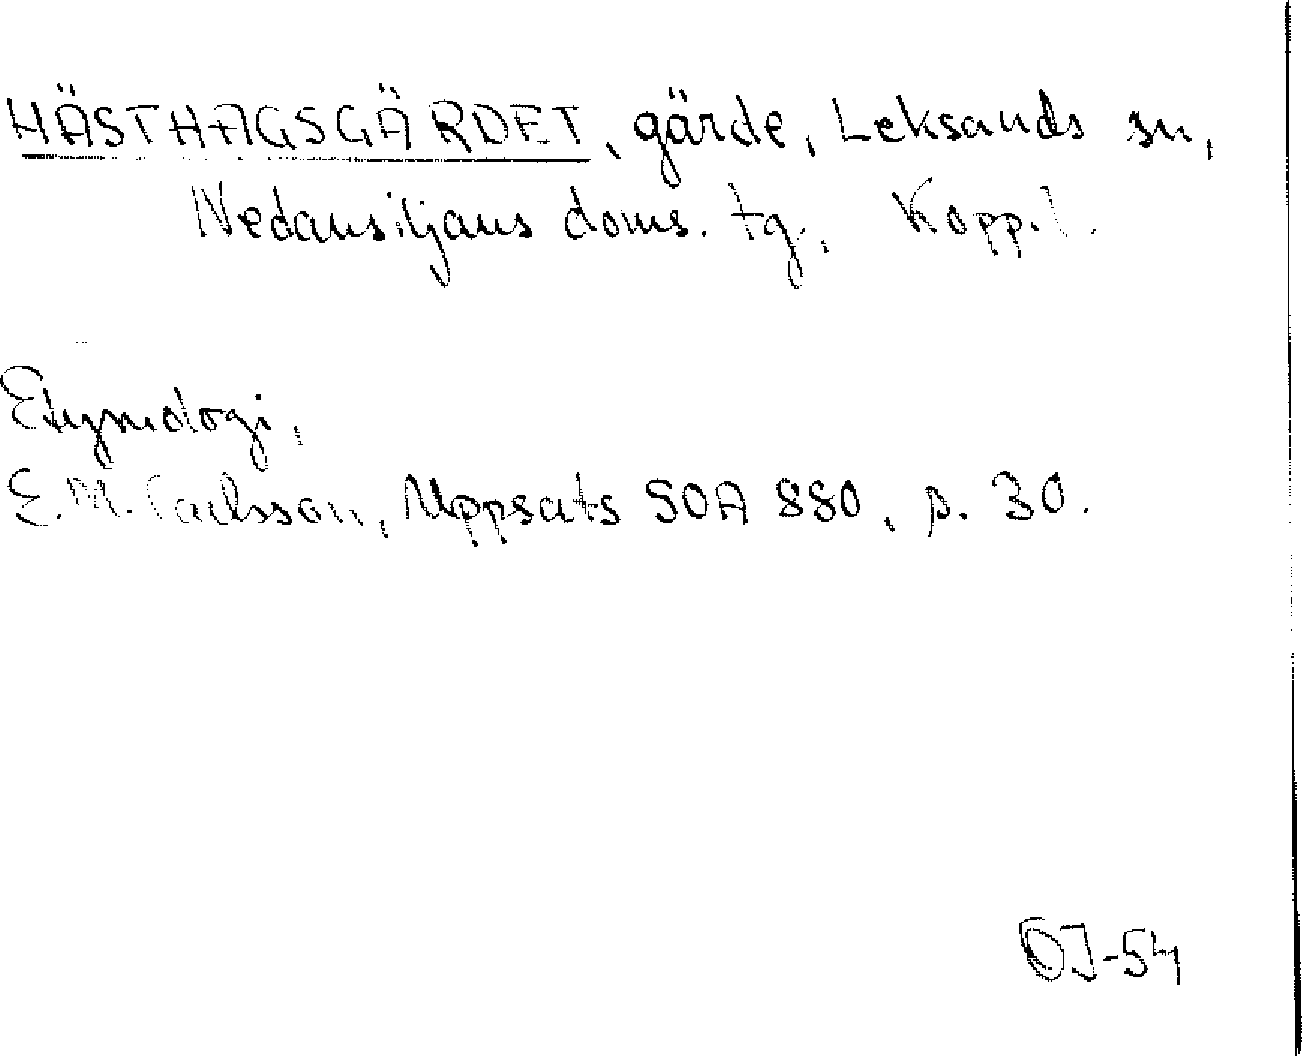 HÄSTHAGSGÄRDET, gärde, Leksands sn,
Nedansiljans doms. tg., Kopp.l.
Etymologi,
E.M. Carlsson, Uppsats SOA 880, s. 30.
OJ-54